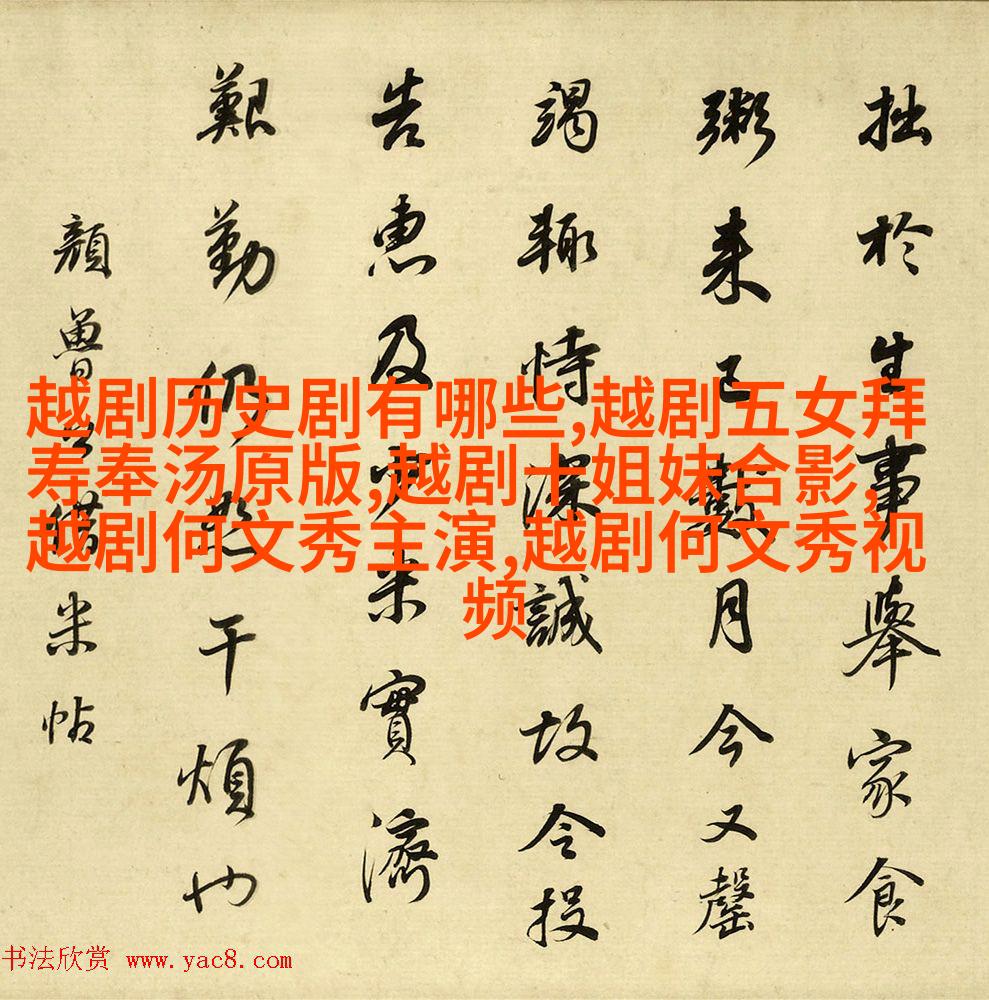 越剧历史剧有哪些,越剧五女拜
寿奉汤原版,越剧十姐妹合影,
越剧何文秀主演,越剧何文秀视
频
拙於生事舉家食
粥来已數月今又罄
竭輒恃深誠故令投
告惠及少米實濟
艱勤仍恕干煩也
顏魯公借米帖
书法欣赏 www.yac8.com